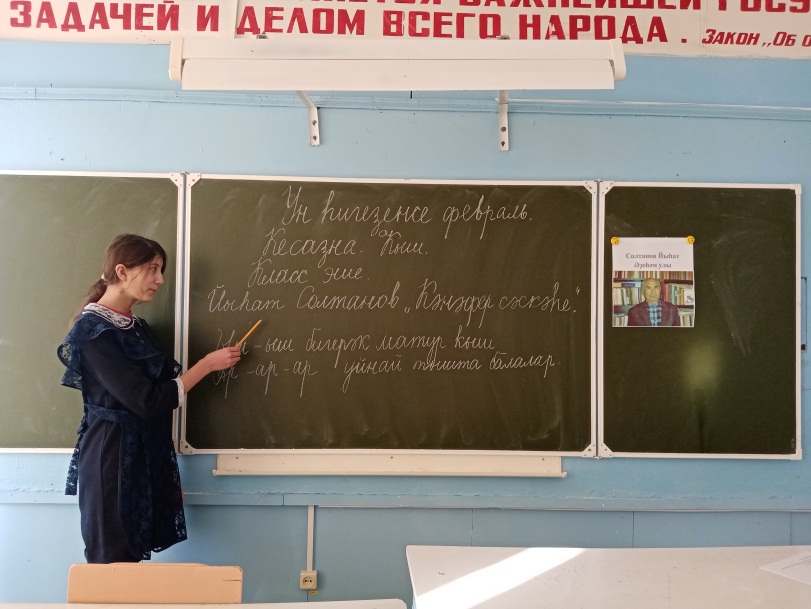 ВАЖНЕЙШЕЙ
ЗАДАЧЕЙ И ДЕЛОМ ВСЕГО НАРОДА. Закон ,,Об о
Ун һигеҙенсе февраль.
Кесаҙна. Ҡыш.
Класс эше
Йыһат Солтанов „Ҡәнәфер сәскәһе".
-ыш бигерәк матур ҡыш
Ар-ар-ар уйнай тышта балалар.
Солтанов Йыһат
Әҙеһәм улы